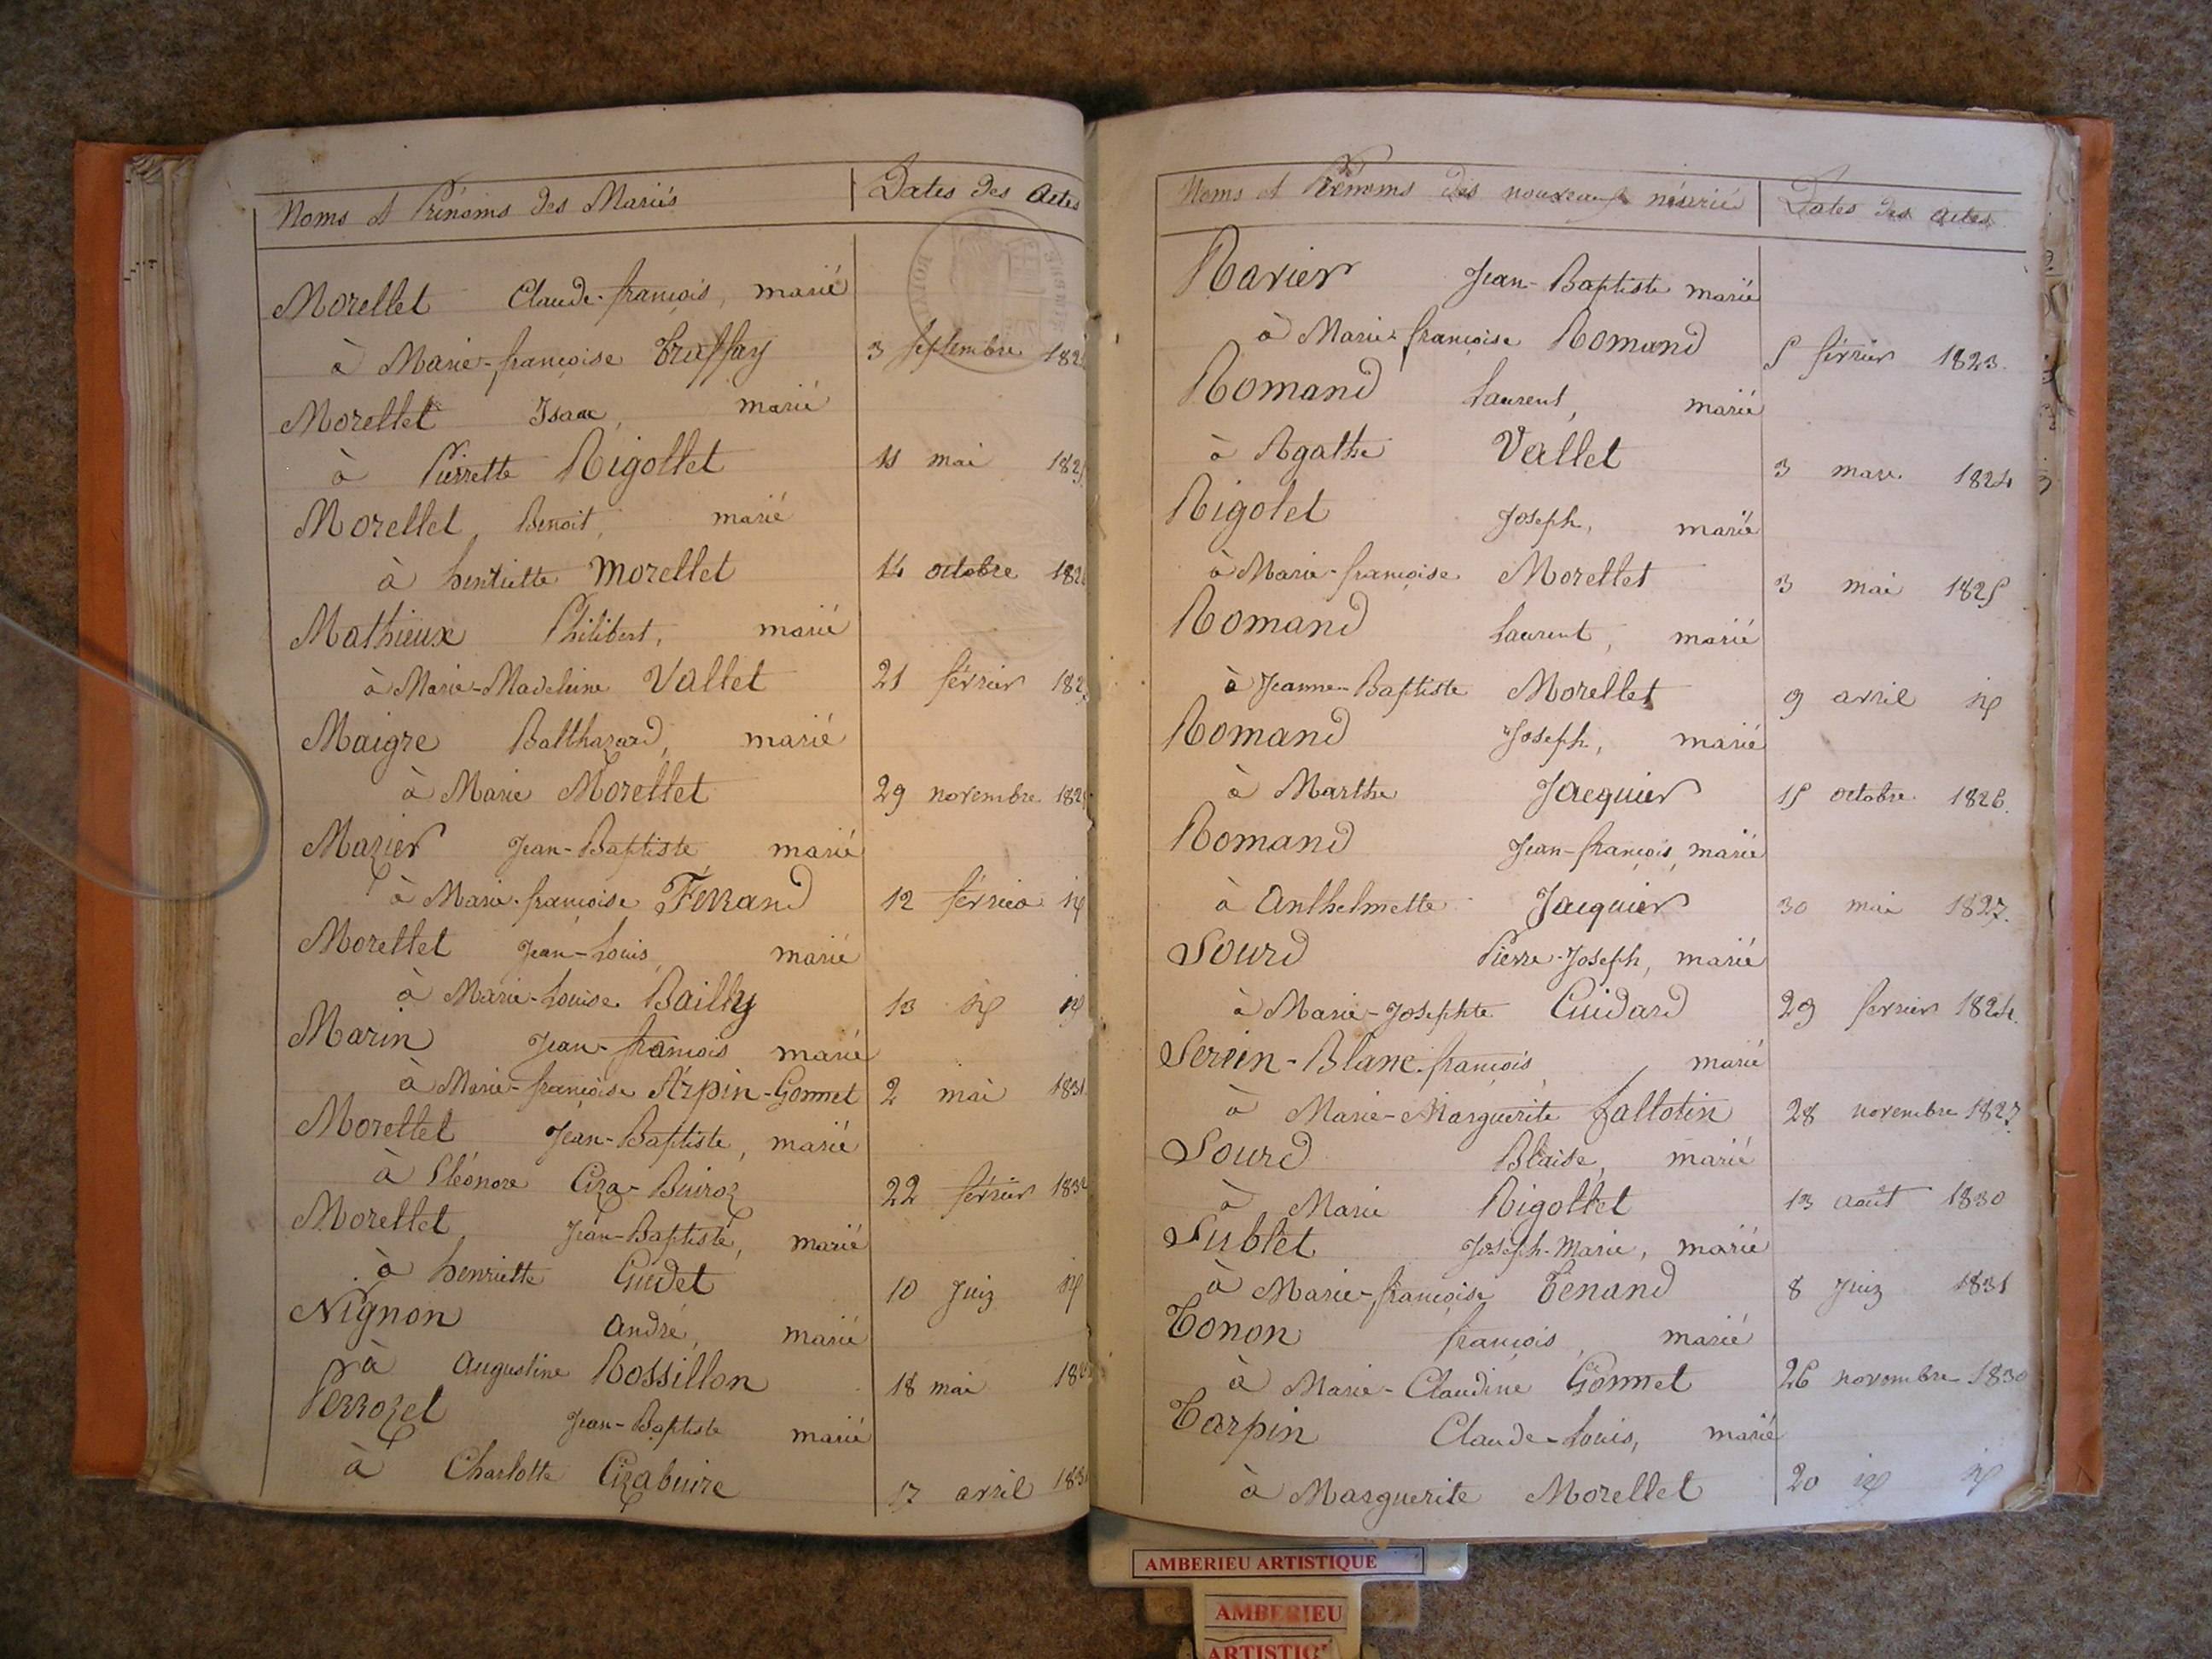 Noms et Prénoms des Mariés Dates des Actes
Morellet Claude-françois, marié
à Marie-françoise Truffay 3 septembre 182
Morellet Isaac, marié
à Pierrette Rigollet 11 mai 182
Morellet Benoit, marié
à henriette Morellet 14 octobre 182
Mathieux Philibert, marié
à Marie-Madeleine Vallet 21 février 182
Maigre Balthazard, marié
à Marie Morellet 29 novembre 182
Mazier Jean-Baptiste marié
à Marie-françoise Ferrand 12 février id
Morellet Jean-Louis, marié
à Marie-Louise Bailly 13 id id
Marin Jean-françois marié
à Marie-françoise Arpin-Gonnet 2 mai 1831
Morellet Jean-Baptiste, marié
à Eléonore Ciza-Buiroz 22 février 183
Morellet Jean-Baptiste, marié
à henriette Gudet 10 Juin id
Nignon André, marié
à Augustine Rossillon 18 mai 18
Perrozet Jean-Baptiste marié
à Charlotte Cizabuire 17 avril 183
Noms et Prénoms des Dates des actes
Ravier Jean-Baptiste marié
à Marie-françoise Romand 5 février 1823.
Romand Laurent, marié
à Agathe Vallet 3 mars 1824
Rigolet Joseph, marié
à Marie-françoise Morellet 3 mai 1825
Romand Laurent, marié
à Jeanne-Baptiste Morellet 9 avril id
Romand Joseph, marié
à Marthe Jacquier 15 octobre 1826.
Romand Jean-françois, marié
à Anthelmette Jacquier 30 mai 1827.
Sourd Pierre-Joseph, marié
à Marie-Josephte Cuidard 29 fevrier 1824.
Serein-Blanc françois, marié
à Marie-Marguerite Jallotin 28 novembre 1827.
Sourd Blaise, marié
à Marie Rigollet 13 août 1830
Sublet Joseph-Marie, marié
à Marie-françoise Tenand 8 Juin 1831
Tonon françois, marié
à Marie-Claudine Gonnet 26 novembre 1830
Tarpin Claude-Louis, marié
à Marguerite Morellet 20 id id
AMBERIEU ARTISTIQUE
AMBERIEU
ARTISTIQ